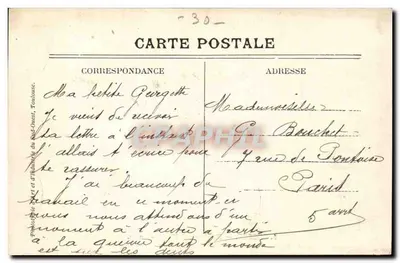 - 30 -
CARTE POSTALE
CORRESPONDANCE
Ma petite Georgette
Je viens de recevoir
ta lettre à l'instant
te rassurer.
J'ai beaucoup de
travail en ce moment et
nous nous attendons d'un
moment à l'autre à partir
à la guerre tout le monde
est sur les dents
ADRESSE
Mademoiselle
G. Bouchet
7 rue de Pontoise
Paris
5 arrd